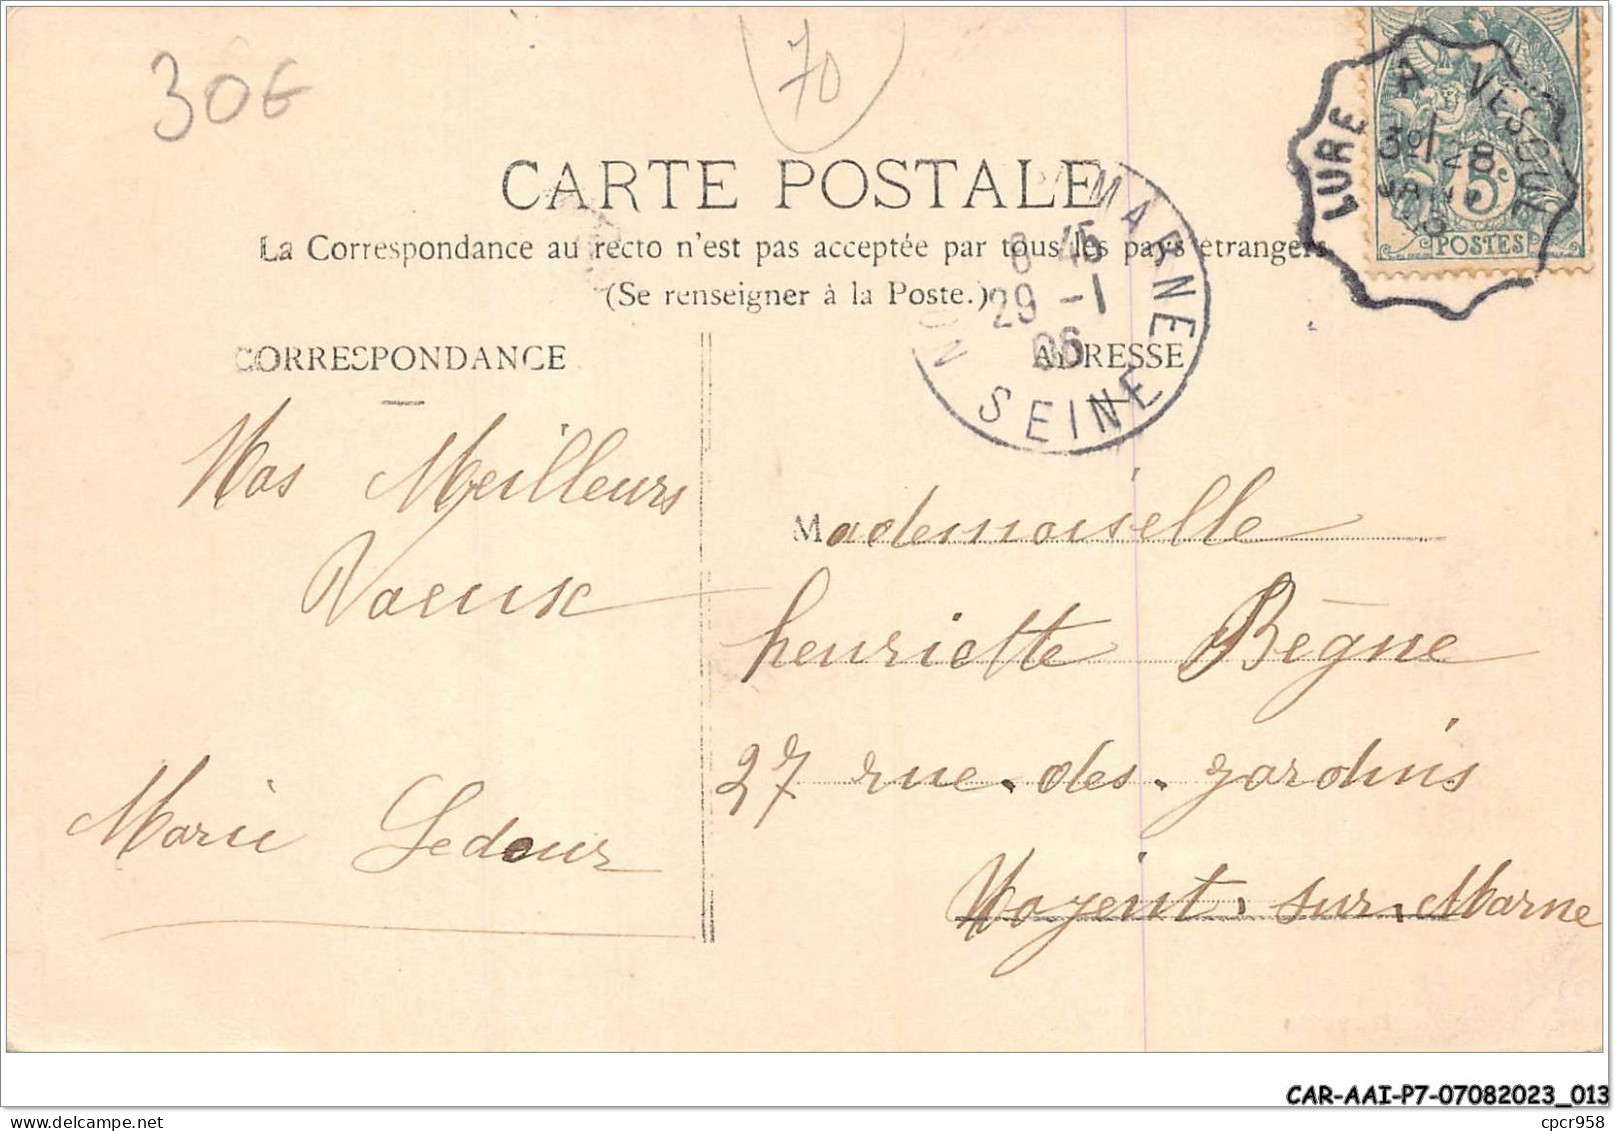 30€
70
LURE A VESOUL
3º/28
JANV
06
5c
POSTES
CARTE POSTALE
La Correspondance au recto n'est pas acceptée par tous les pays étrangers
(Se renseigner à la Poste.)
MARNE
6 45
29 -1
06
SEINE
CORRESPONDANCE
ADRESSE
Mos Meilleurs
Voeux
Marie Ledour
Mademoiselle
henriette Bègne
27 rue des jardins
Nogent sur Marne
CAR-AAI-P7-07082023_013
cpcr958